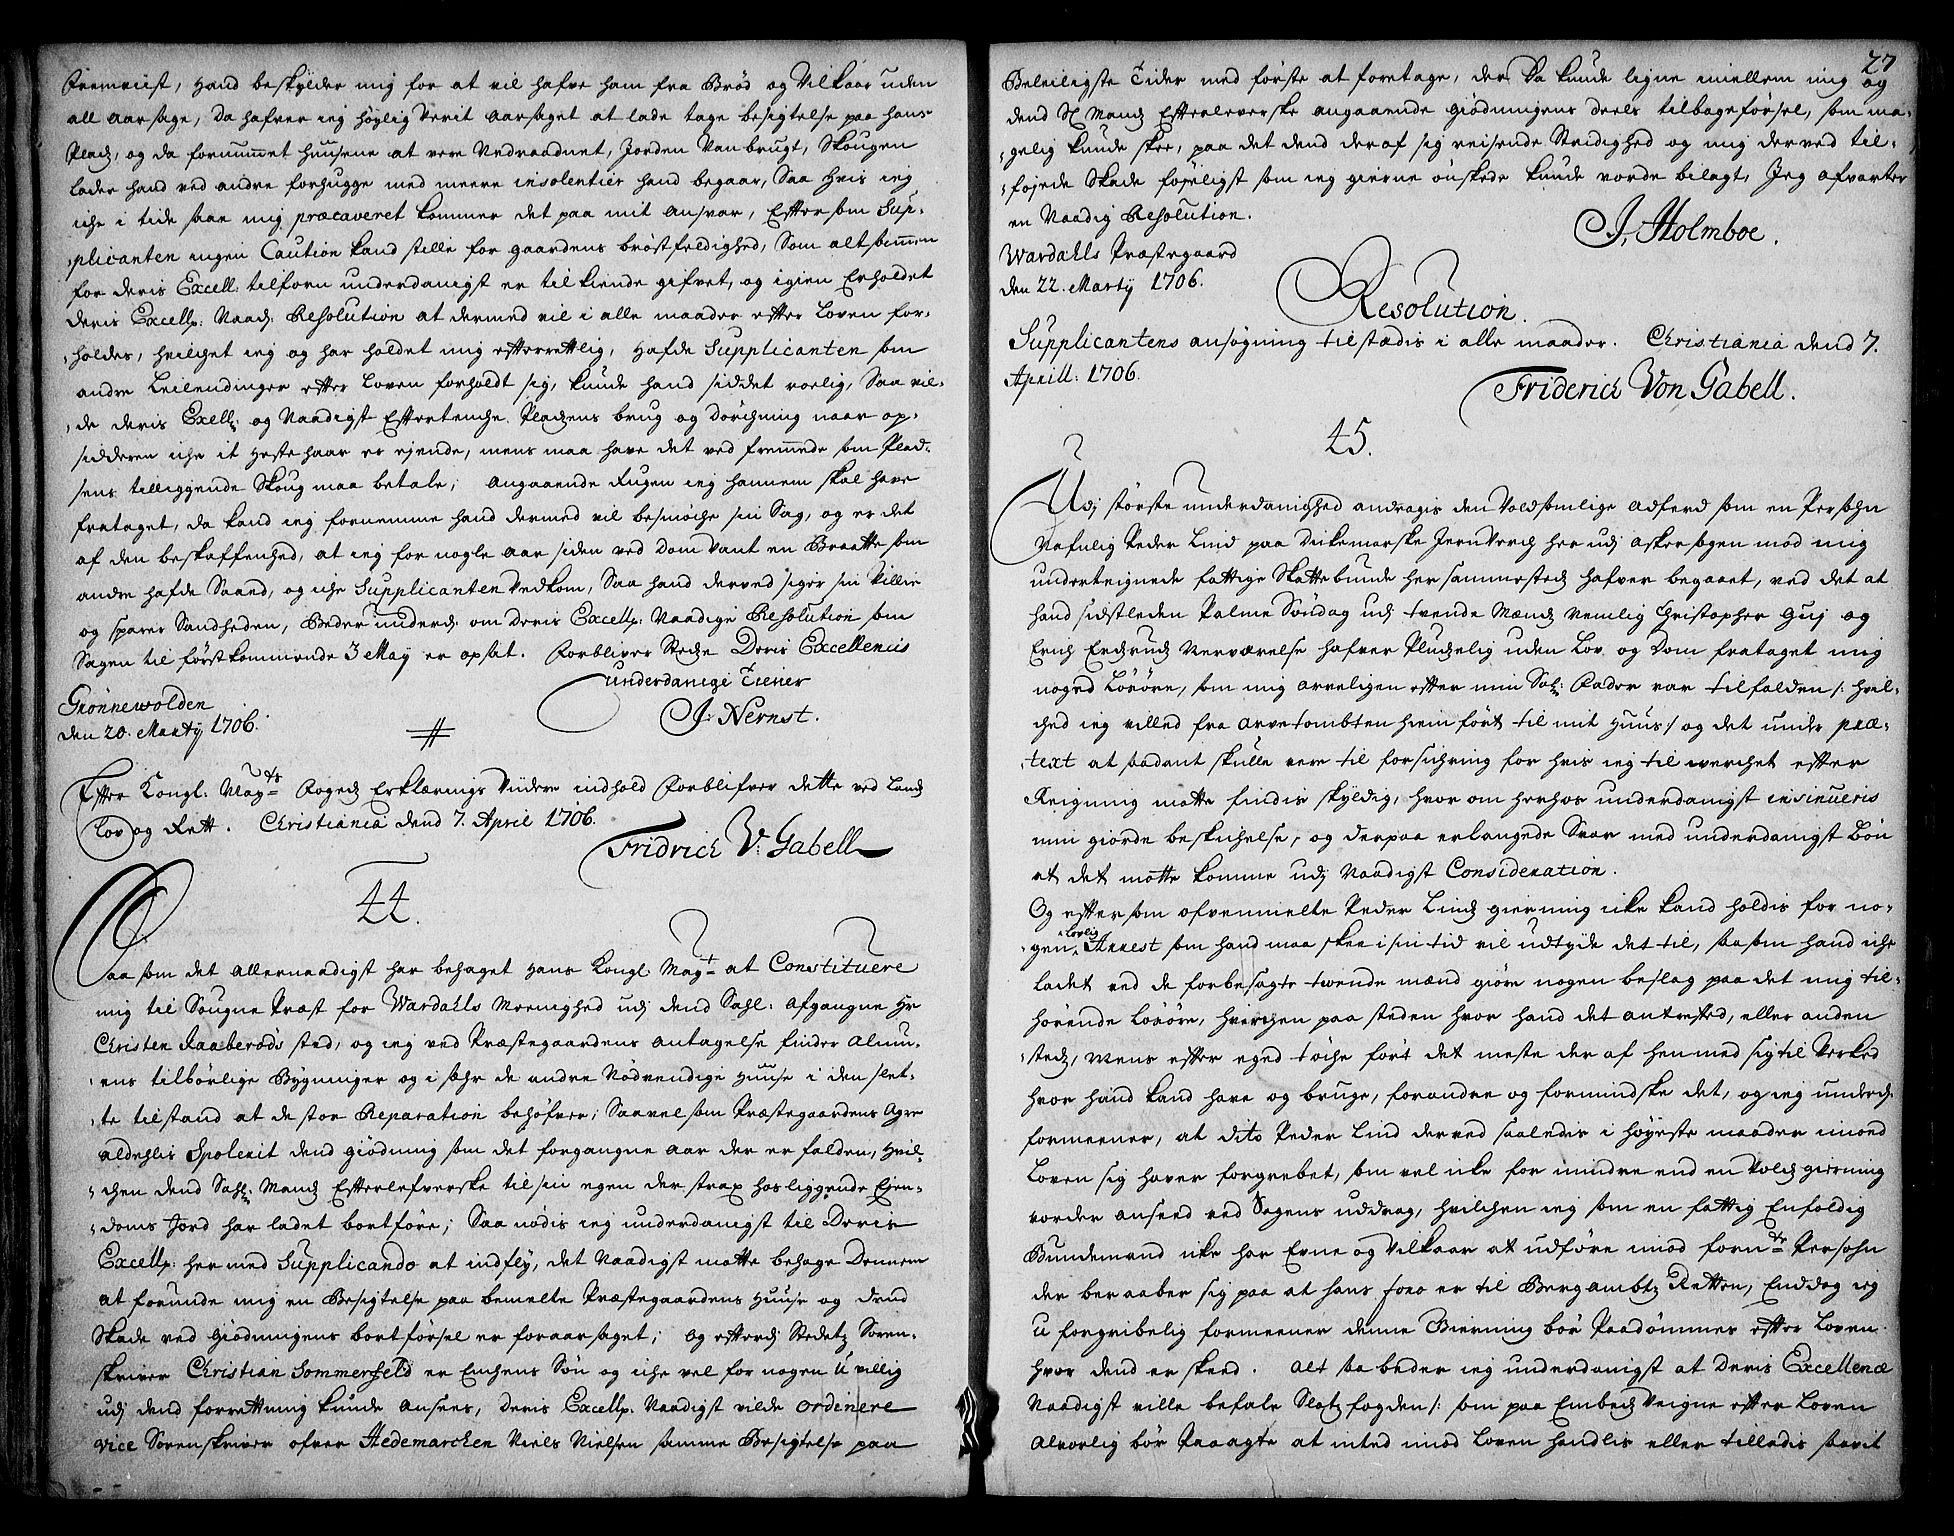 Fremviist, hand beskylder mig for at vil hafve ham fra Brød og Vilkaar uden
all aarsage, da hafver ieg høylig verit aarsaget at lade tage besigtelse paa hans
Pladz, og da fornummet huusene at vere Nedraadnet, Jorden Vanbrugt, Skougen
lader hand ved andre forhugge med meere insolentier hand begaar, Saa hvis ieg
iche i tide saae mig præcaveret kommer det paa mit ansvar, Efftersom Sup-
plicanten ingen Caution kand stille for gaardens brøstfeldighed, Som alt sammen
for deris Excell: tilforn underdanigst er tilkiende gifvet, og igien Erholdet
Deris Excellz: Naadz: Resolution at dermed vil i alle maader effter Loven for-
holdes, hvilchet ieg og har holdet mig efterrettlig, hafde Supplicanten som
andre Leilendinger effter Loven forholdt sig, kunde hand siddet roelig, Saa vil-
de deris Exellz og Naadigst Effertenche Pladzens brug og dørchning naar op-
sidderen iche it hestehaar er ejende, mens maa have det ved fremmede som Plad-
sens tilliggende Skoug maa betale; Angaaende Rugen ieg hannem skal have
frataget, da kand ieg fornemme hand dermed vil besmøche sin Sag, og er det
af den beskaffenhed, at ieg for nogle aar siden ved Dom vant en Braatte som
andre hafde Saaed, og iche Supplicanten Vedkom, Saa hand derved siger sin Villie
og sparer Sandheden, Beder underdz: om Deris Excellz: Naadige Resolution som
Sagen til førstkommende 3 Maÿ er opsat. Forbliver Stedse Deris Excellencis
underdanige Tiener
Grønnewolden
den 20. Martÿ 1706.
J: Nernst.
Effter Kongl: Mayts Fogedz Erklærings Videre indhold Forblifver dette ved Landz
Lov og Rett. Christiania dend 7. April 1706.
Fridrich V: Gabell
44.
Saasom det allernaadigst har behaget Hans Kongl Mayt at Constituere
mig til Sougne Præst for Wardahls Menighed udj dend Sahl: afgangne Hr
Christen Raaberøds sted, og ieg ved Præstegaardens antagelse finder Alwu-
ens tilbørlige Bygninger og i sær de andre Nødvendige huuse i den slet-
te tilstand at de stor Reparation behøfver; Saavelsom Præstegaardens Agre
aldehlis Spolerit dend giødning som det forgangne aar der er falden, hvil-
chen dend Sahl: Mandz Effterlefverske til sin egen der strax hosliggende Ejen-
doms Jord har ladet bortføre; Saa nødis ieg underdanigst til Deris
Excellz: her med Supplicando at indfly, det Naadigst motte behage Dennem
at forunde mig en Besigtelse paa bemelte Præstegaardens Huuse og dend
Skade ved Giødningens bortførsel er foraarsaget; og efftersom Stedetz Soren-
skriver Christian Sommerfeld er Enchens Søn og iche vel for nogen Uvillig
udj dend forrettning kunde ansees, deris Excellz: Naadigst vilde ordinere
vice Sorenskriver ofver Hedemarchen Niels Nielsen samme Besigtelse paa
27
Beleiligste Tider med første at foretage, der da kunde ligne imellem mig og
dend Sl Mandz Effterleverske angaaende Giødningens deels tilbageførsel, som ma-
gelig kunde skee, paa det dend deraf sig reisende Stridighed og mig derved til-
føjede Skade føjeligst som ieg gierne ønskede kunde vorde bilagt, Jeg afvarter
en Naadig Resolution.
J. Holmboe.
Wardahls Præstegaard
den 22. Martÿ 1706.
Resolution.
Supplicantens ansøgning tilstædis i alle maader. Christiania dend 7.
Aprill: 1706.
Friderich Von Gabell.
45.
Udj største underdanighed andragis den Voldsomlige adferd som en Persohn
Nafnlig Peder Lind paa Dikemarske Jernverch her udj Askersogen mod mig
underteignede fattige Skattebunde her sammestedz hafver begaaet, ved det at
hand sidstleden Palme Søndag udj tvende Mændz Nemlig Christopher Guj og
Erich Erchrudz Nerværelse hafver Pludselig uden Lov og Dom frataget mig
noged Løsøre, som mig arveligen effter min Sal: Fader var tilfalden /: hvil-
ched ieg villed fra arvetombten hiemført til mit Huus :/ og det under præ-
text at saadant skulle vere til forsichring for hvis ieg til werchet effter
Reigning motte findis skyldig, hvorom herhos underdanigst insinueris
min giorde beskichelse, og derpaa erlangede Svar med underdanigst Bøn
at det motte komme udj Naadigst Consideration.
Og efftersom ofvenmelte Peder Lindz gierning icke kand holdis for no-
gen lovlig Arrest som hand maa skee i sin tid vil udtyde det til, saasom hand iche
ladet ved de forbesagte tvende mænd giøre nogen beslag paa det mig til-
hørende Løsøre, hverchen paa steden hvor hand det antrefted, eller anden
stedz, Mens effter eged tøche ført det meste der af hen med sig til Verched
hvor hand kand have og bruge, forandre og formindske det, og ieg underdz
formeener, at dito Peder Lind derved saaledis i høyeste maader imod
Loven sig haver forgrebet, som vel icke for mindre end en Voldz gierning
vorder anseed ved Sagens uddrag, hvilchen ieg som en fattig Enfoldig
Bundemand icke har Evne og Vilkaar at udføre imod fornde Persohn
der beraaber sig paa at hans foro er til Bergambtz Retten, Enddog ieg
uforgribelig formeener denne Gierning bør Paadømmes effter Loven
hvor dend er skeed. Alt saa beder ieg underdanigst at Deris Excellence
Naadigst ville befale Slotzfogden /: som paa Embedz Veigne effter Loven
Alvorlig bør Paaagte at inted imod Loven handlis eller tilledis saavit